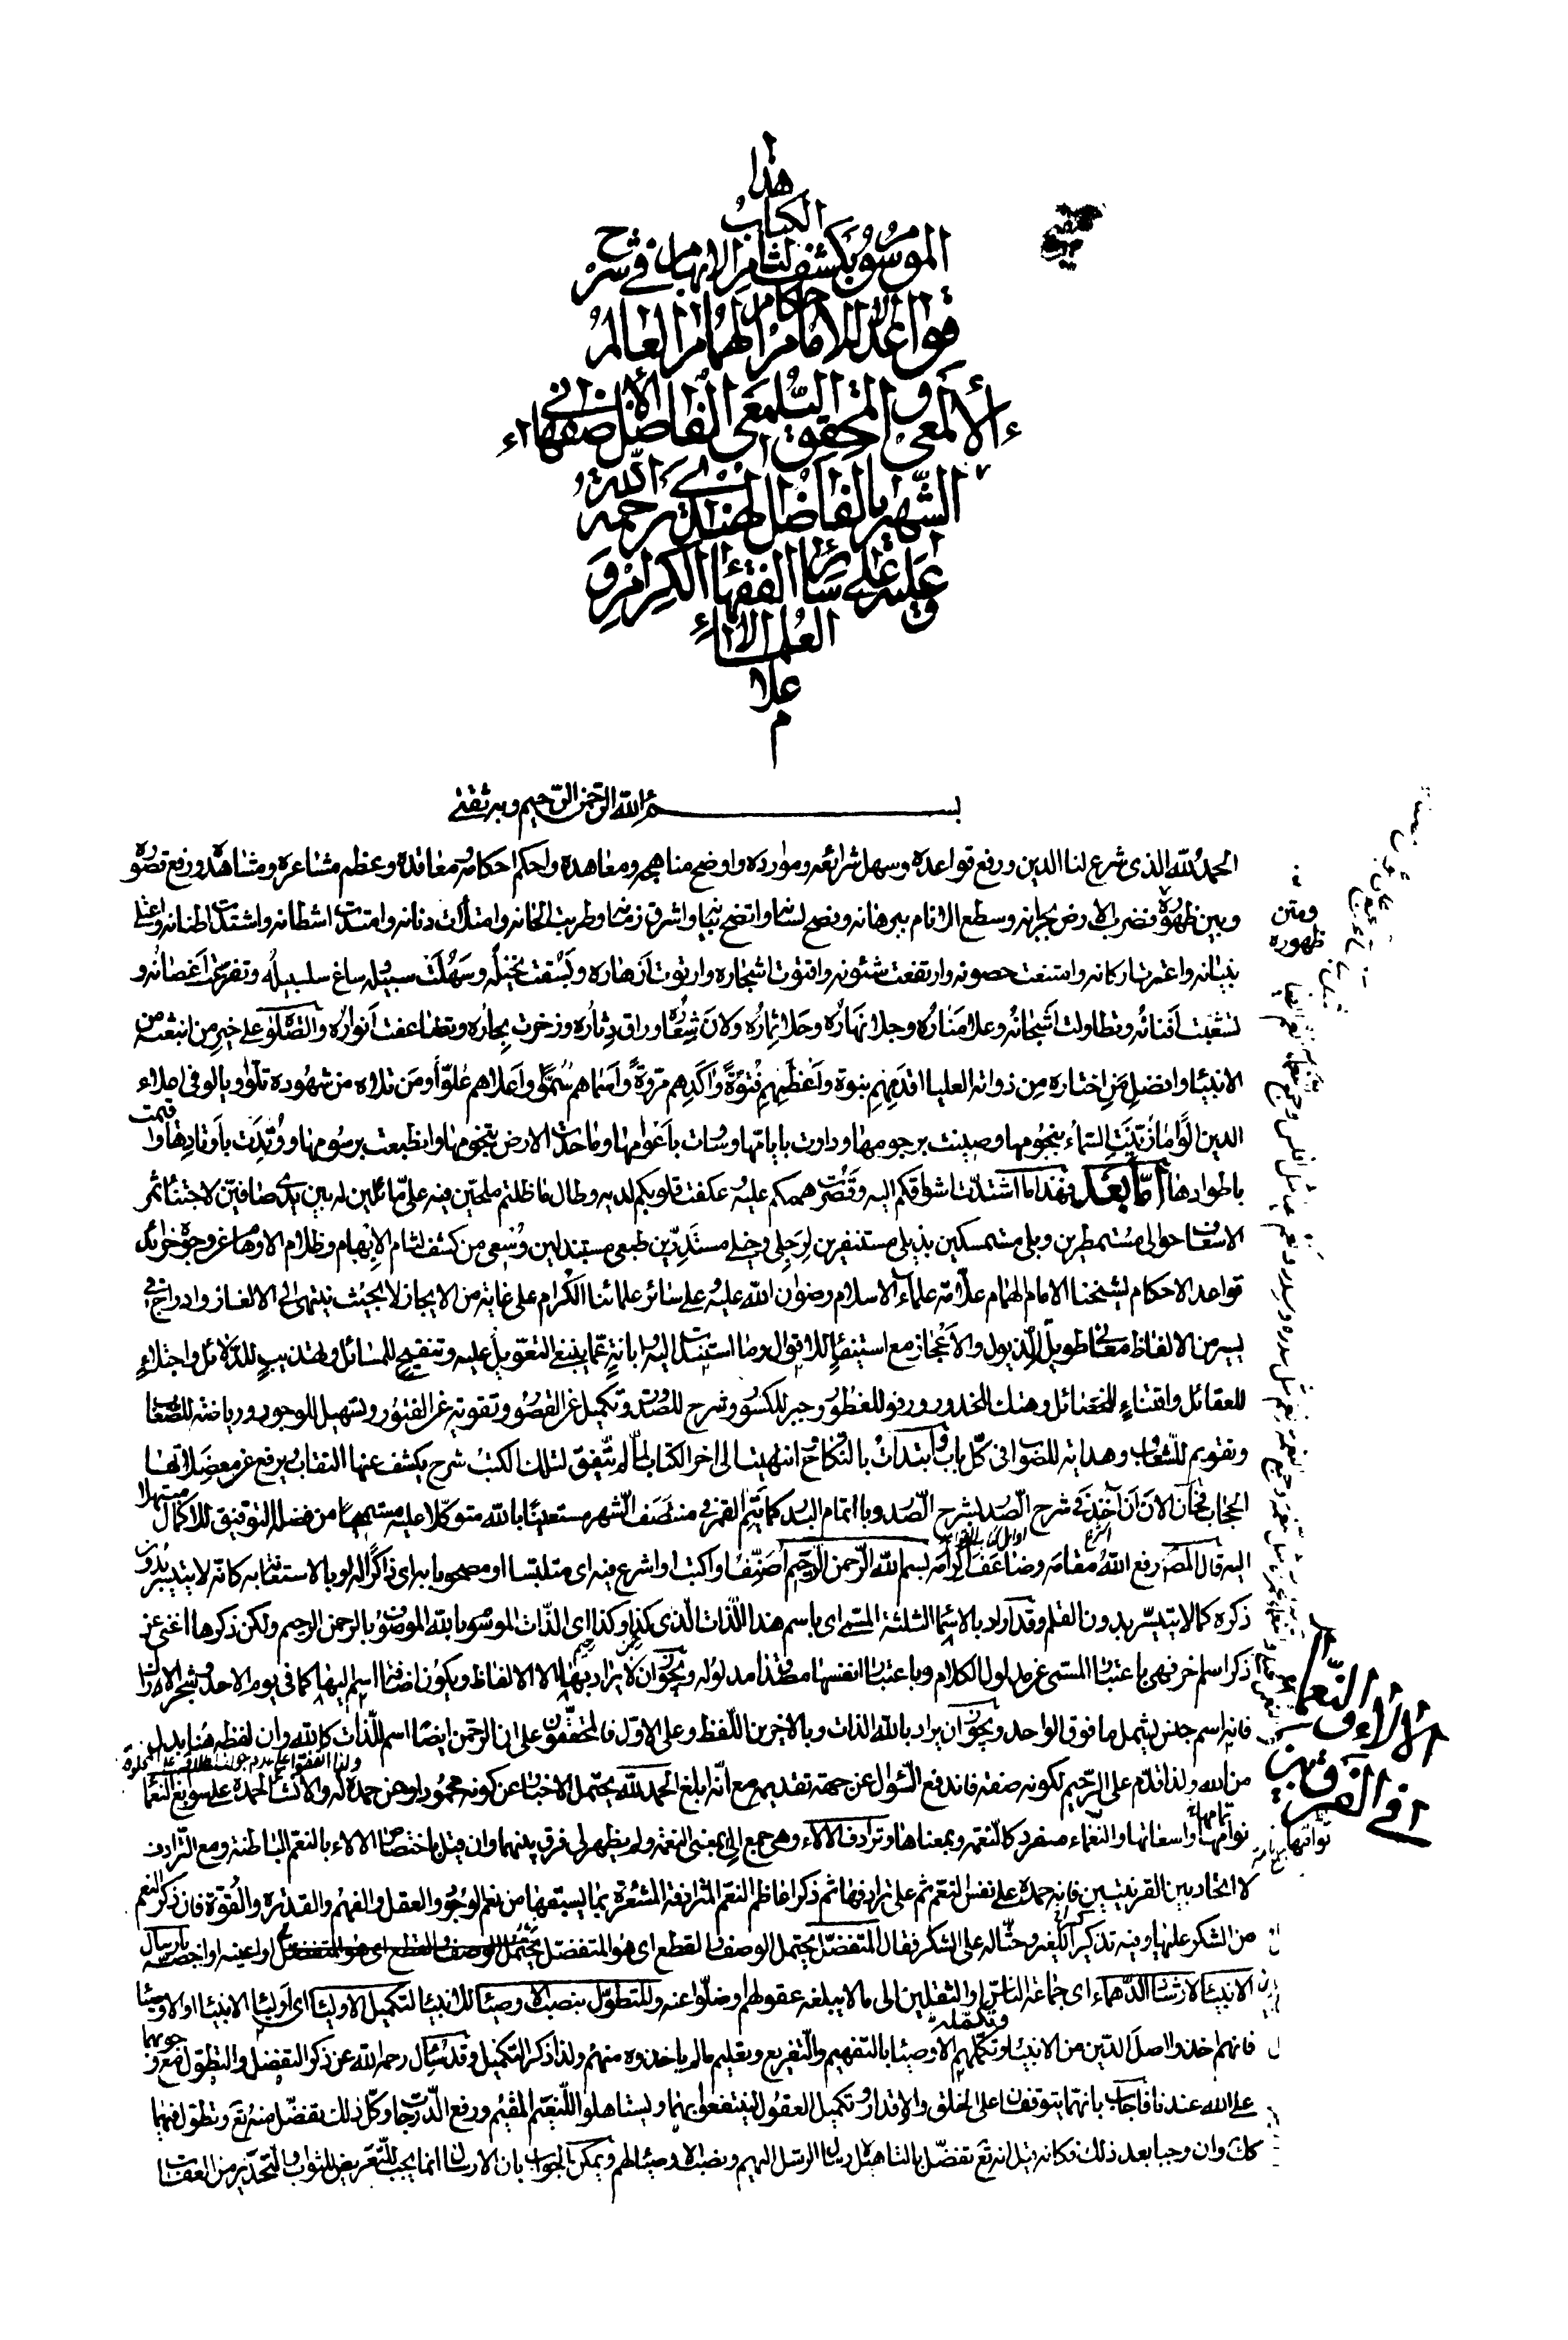 هذا
الكتاب
الموسوم بكشف لثام الابهام فى شرح
قواعد الاحكام للامام الهمام العالم
الألمعى و المحقق اليلمعى الفاضل الاصفهانى
الشهير بالفاضل الهندى رحمة الله
عليه و على سائر الفقهاء الكرام و
العلماء الا
علام
بسم الله الرحمن الرحيم وبه ثقتى
الحمد لله الذى شرع لنا الدين ورفع قواعده وسهل شرائعه وموارده واوضح مناهجه ومعاهده واحكم احكامه ومعاقده وعظم مشاعره ومشاهده ورفع قصوره
وبين ظهوره فضرب الارض بجرانه وسطع الانام ببرهانه وفصح لسانا واتضح بيانا واشرق زمانا وطربت الحانه وامتلات دنانه وامتدت اشطانه واشتدت اطنانه واعتلى
بنيانه واعتز باركانه وامتنعت حصونه وارتفعت شئونه واقنوت اشجاره وارتوت ازهاره وبسقت نخيله وسهلت سبيله ساغ سلسبيله وتفرعت اغصانه و
تشعبت افنانه وتطاولت اشجانه وعلا مناره وجلا نهاره وحلا ثماره ولان شعاره وراق دثاره وزخرت بحاره وتضاعفت انواره والصلوة على خير من انبعث من
الانبياء وافضل من اختاره من ذواته العليا اقدمهم نبوة واعظمهم فتوة واكدهم مروة واسماهم سموا واعلاهم علوا ومن تلاه من شهوده تلوا وبالوفى اصلاء
الدين الوا ما زينت السماء بنجومها وصينت برجومها ودارت بايامها وسات باعوامها وما حدت الارض بتخومها وانطبعت برسومها ووتدت باوتادها و
باطوادها اما بعد فهذا ما اشتدت اشواقكم اليه وقصرت هممكم عليه عكفت قلوبكم لديه وطال ما ظلتم ملحين فيه على ماثلين له بين يدى صافين لاجتناء ثمر
الاسعاف حوالى مستمطرين وبلى متمسكين بذيلى مستنفرين لرجلى وخيلى مستدرين طبعى مستبذلين وسعى من كشف لثام الابهام وظلام الاوهام عن وجوه خرائد
قواعد الاحكام لشيخنا الامام الهمام علامة علماء الاسلام رضوان الله عليه وعلى سائر علمائنا الكرام على غاية من الايجاز لا بحيث ينتهى الى الالغاز وادراج فى
يسير من الالفاظ معانى طويل الذيول والاعجاز مع استيفاء للاقوال وما استندت اليه وابانة عما ينبغى التعويل عليه وتنقيح للمسائل وتهذيب للدلائل واجتلاء
للعقائل واقتناء للخصائل وهتك للخدور ورفو للفطور وجبر للكسور وشرح للصدور وتكميل عن القصور وتقوية عن الفتور وتسهيل للوجور ورياضة للصعاب
وتقويم للشعاب وهداية للصواب فى كل باب وابتدأت بالنكاح وانتهيت الى اخر الكتاب لما لم يتفق لتلك الكتب شرح يكشف عنها النقاب يرفع عن معضلاتها
الحجاب فحان الان ان آخذ فى شرح الصدر لشرح الصدر وباتمام البدر كما يتم القمر فى منتصف الشهر مستعينا بالله متوكلا عليه مستميحا من فضله التوفيق للاكمال مبتهلا
اليه قال المصنف رفع الله مقامه وضاعف اكرامه بسم الله الرحمن الرحيم اصنف او اكتب او اشرع فيه اى متلبسا او مصحوبا به اى ذاكرا له او بالاستعانة به كانه لا يتيسر بدون
ذكره كما لا يتيسر بدون القلم وقد اراد بالاسماء الثلثة المسمى اى باسم هذا الذات الذى كذا وكذا اى الذات الموسوم بالله الموصوف بالرحمن الرحيم ولكن ذكرها اغنى عن
ذكر اسم اخر فهى باعتبار المسمى عين مدلول الكلام وباعتبار انفسها من مدلوله ويجوز ان لا يراد بها الا الالفاظ ويكون اضافة اسم اليها كما فى يوم الاحد وشجر الاراك
فانه اسم جنس يشمل ما فوق الواحد ويجوز ان يراد بالله الذات وبالاخرين اللفظ وعلى الاول فالمحققون على ان الرحمن ايضا اسم للذات كالله وان لفظه هنا بدل
من الله ولذا قدم على الرحيم لكونه صفة فاندفع السؤال عن جهة تقديمه مع انه ابلغ الحمد لله يحتمل الاخبار عن كونه محمودا وعن حمده له والانشاء لحمده على سوابغ النعماء
توامها واسعاتها والنعماء مفرد كالنعمة وبمعناها وترادف الآلاء وهى جمع الى بمعنى النعمة ولم يظهر لى فرق بينهما وان قيل باختصاص الالاء بالنعم الباطنة ومع الترادف
لا اتحاد بين القرينتين فانه حمده على نفس النعم ثم على ترادفها ثم ذكر اعاظم النعم المترادفة المشعرة بما يسبقها من نعم الوجود والعقل والفهم والقدرة والقوة فان ذكر النعم
من الشكر عليها وفيه تذكير لغيره وحثا له على الشكر فقال المتفضل يحتمل الوصف والقطع اى هو المتفضل او اعنيه او اخصه بارسال
الانبياء لارشاد الدهماء اى جماعة الناس او الثقلين الى ما لا يبلغه عقولهم او ضلوا عنه والمتطول بنصب الاوصياء للانبياء لتكميل الاولياء اى اولياء الانبياء او الاوصياء
فانهم اخذوا اصل الدين من الانبياء وتكملهم الاوصياء بالتفهيم والتفريع وتعليم ما لم ياخذوه منهم ولذا ذكر التكميل وقد يسال رحمه الله عن ذكر التفضل والتطول مع وجوبهما
على الله عندنا فاجاب بانهما يتوقفان على الخلق والاقدار وتكميل العقول لينتفعوا بهما ويستاهلوا للنعيم المقيم ورفع الدرجات وكل ذلك تفضل منه تع وتطول فهما
كك وان وجبا بعد ذلك فكانه قيل انه تع تفضل بالتاهيل لارسال الرسل اليهم ونصب الاوصياء لهم ويمكن الجواب بان الارسال انما يجب للتعريض للثواب والتحذير من العقاب
ومتن
ظهوره
الآلاء و النعماء
فى الفرق بين